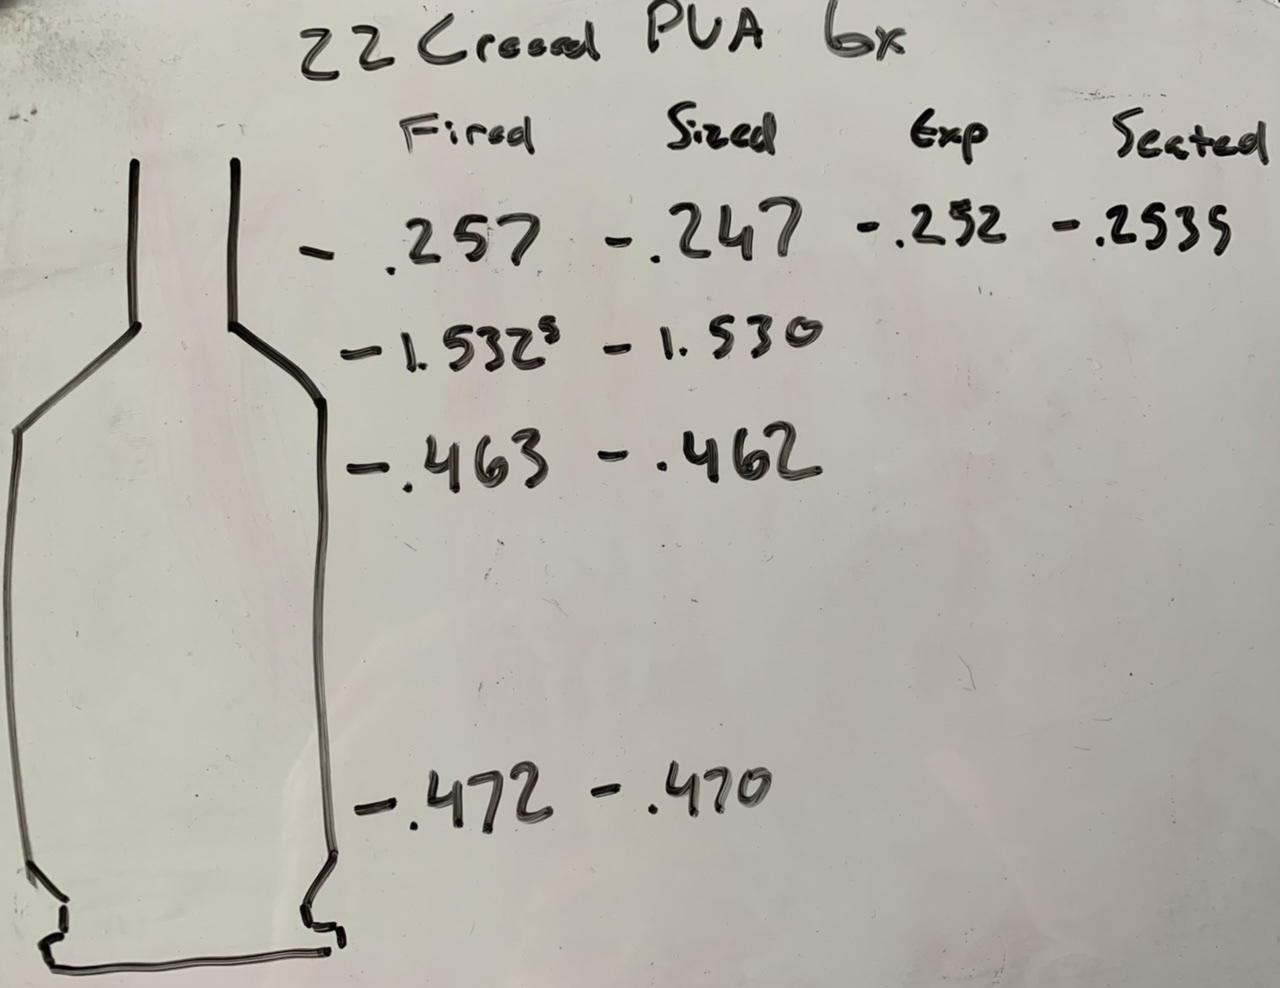 22 Creed PVA 6x
Fired Sized Exp Seated
- .257 - .247 - .252 - .2535
- 1.532⁵ - 1.530
- .463 - .462
- .472 - .470